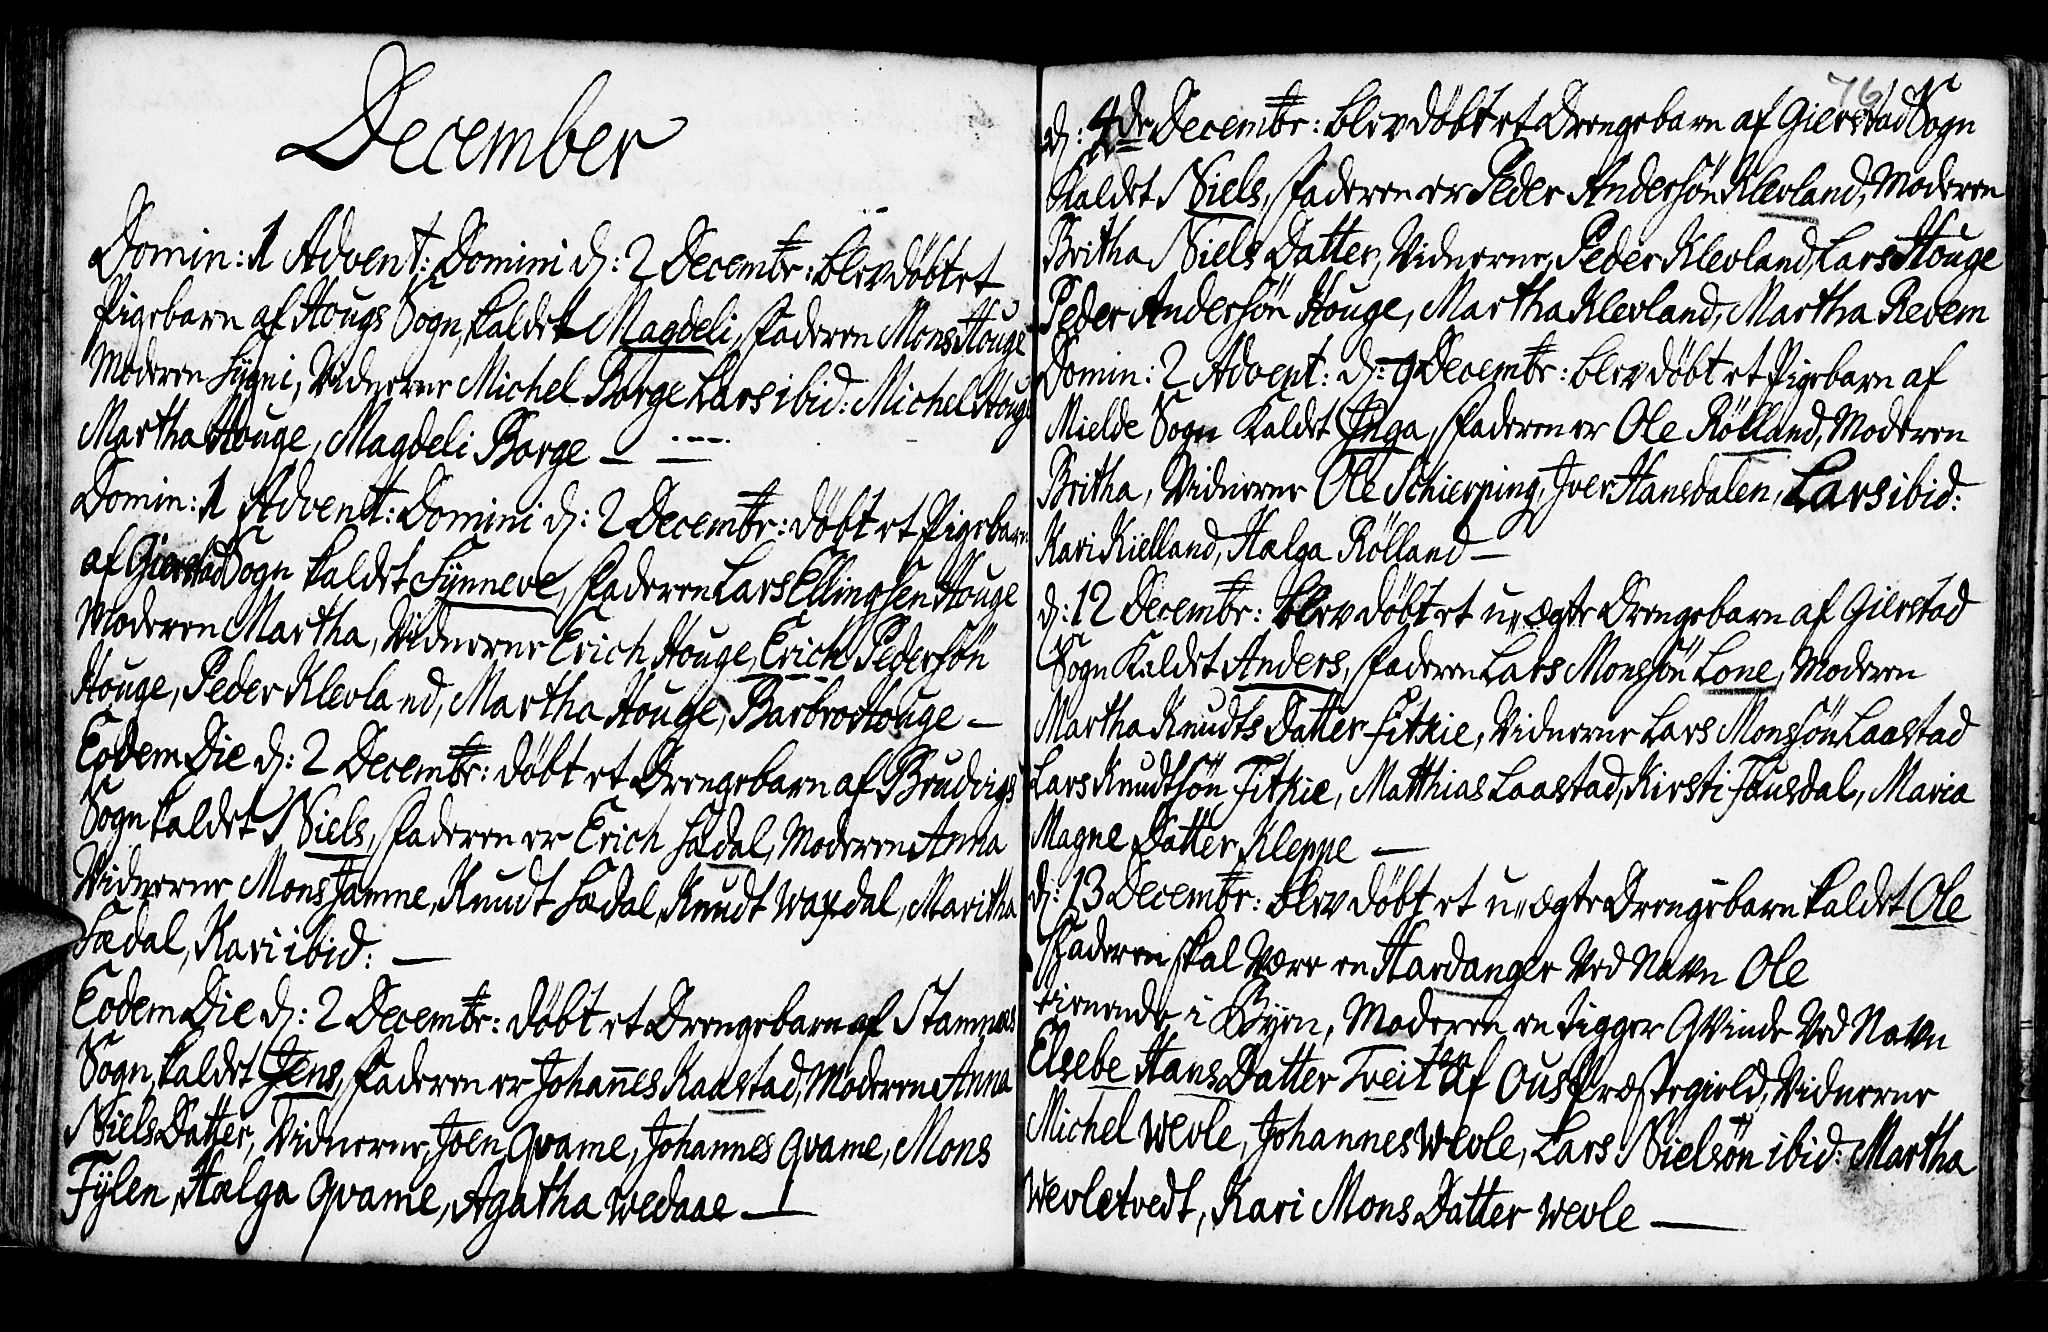 December
Domin: 1 Advent: Domini d: 2 Decembr: blev døbt et
Pigebarn af Hougs Sogn, kaldet Magdeli, Faderen Mons Houge
Moderen Sygni, Vidnerne Michel Borge Lars ibid: Michel Houge
Martha Houge, Magdeli Borge —
Domin: 1 Advent: Domini d: 2 Decembr: døbt et Pigebarn
af Gierstad Sogn kaldet Synneve, Faderen Lars Ellingsen Houge
Moderen Martha, Vidnerne Erich Houge, Erich Pedersøn
Houge, Peder Klevland, Martha Houge, Barbro Houge —
Eodem Die d: 2 Decembr: døbt et Drengebarn af Brudvigs
Sogn kaldet Niels, Faderen er Erich Sædal, Moderen Anna
Vidnerne Mons Jamne, Knudt Sædal, Knudt Waxdal, Maritha
Sædal, Kari ibid: —
Eodem Die d: 2 Decembr: døbt et Drengebarn af Stamnæs
Sogn, kaldet Jens, Faderen er Johannes Kaastad, Moderen Anna
Niels Datter, Vidnerne, Joen Qvame, Johannes Qvame, Mons
Fylen, Hælga Qvame, Agatha Wedaae —
76
d: 4de Decembr: blev døbt et Drengebarn af Gierstad Sogn
Kaldet Niels, Faderen er Peder Andersøn Klevland, Moderen
Britha Niels Datter, Vidnerne, Peder Klevland, Lars Houge
Peder Andersøn Houge, Martha Klevland, Martha Revem
Domin: 2 Advent: d: 9 Decembr: blev døbt et Pigebarn af
Mielde Sogn Kaldet Inga, Faderen er Ole Rølland, Moderen
Britha, Vidnerne Ole Schierping, Iver Hansdalen, Lars ibid:
Kari Kielland, Hælga Rølland —
d: 12 Decembr: blev døbt et u-ægte Drengebarn af Gierstad
Sogn Kaldet Anders, Faderen Lars Monsøn Lone, Moderen
Martha Knudts Datter Fitkie, Vidnerne Lars Monsøn Laastad
Lars Knudtsøn Fitkie, Matthias Laastad, Kirsti Fausdal, Maria
Magne Datter Kleppe —
d: 13 Decembr: blev døbt et u-ægte Drengebarn kaldet Ole
Faderen skal være en Hardanger ved Navn Ole
tienende i Byen, Moderen en tigger Qvinde ved Navn
Elsebe Hans Datter Tveiten af Ous Præstegield, Vidnerne
Michel Wevle, Johannes Wevle, Lars Nielsøn ibid: Martha
Wevletvedt, Kari Mons Datter Wevle —